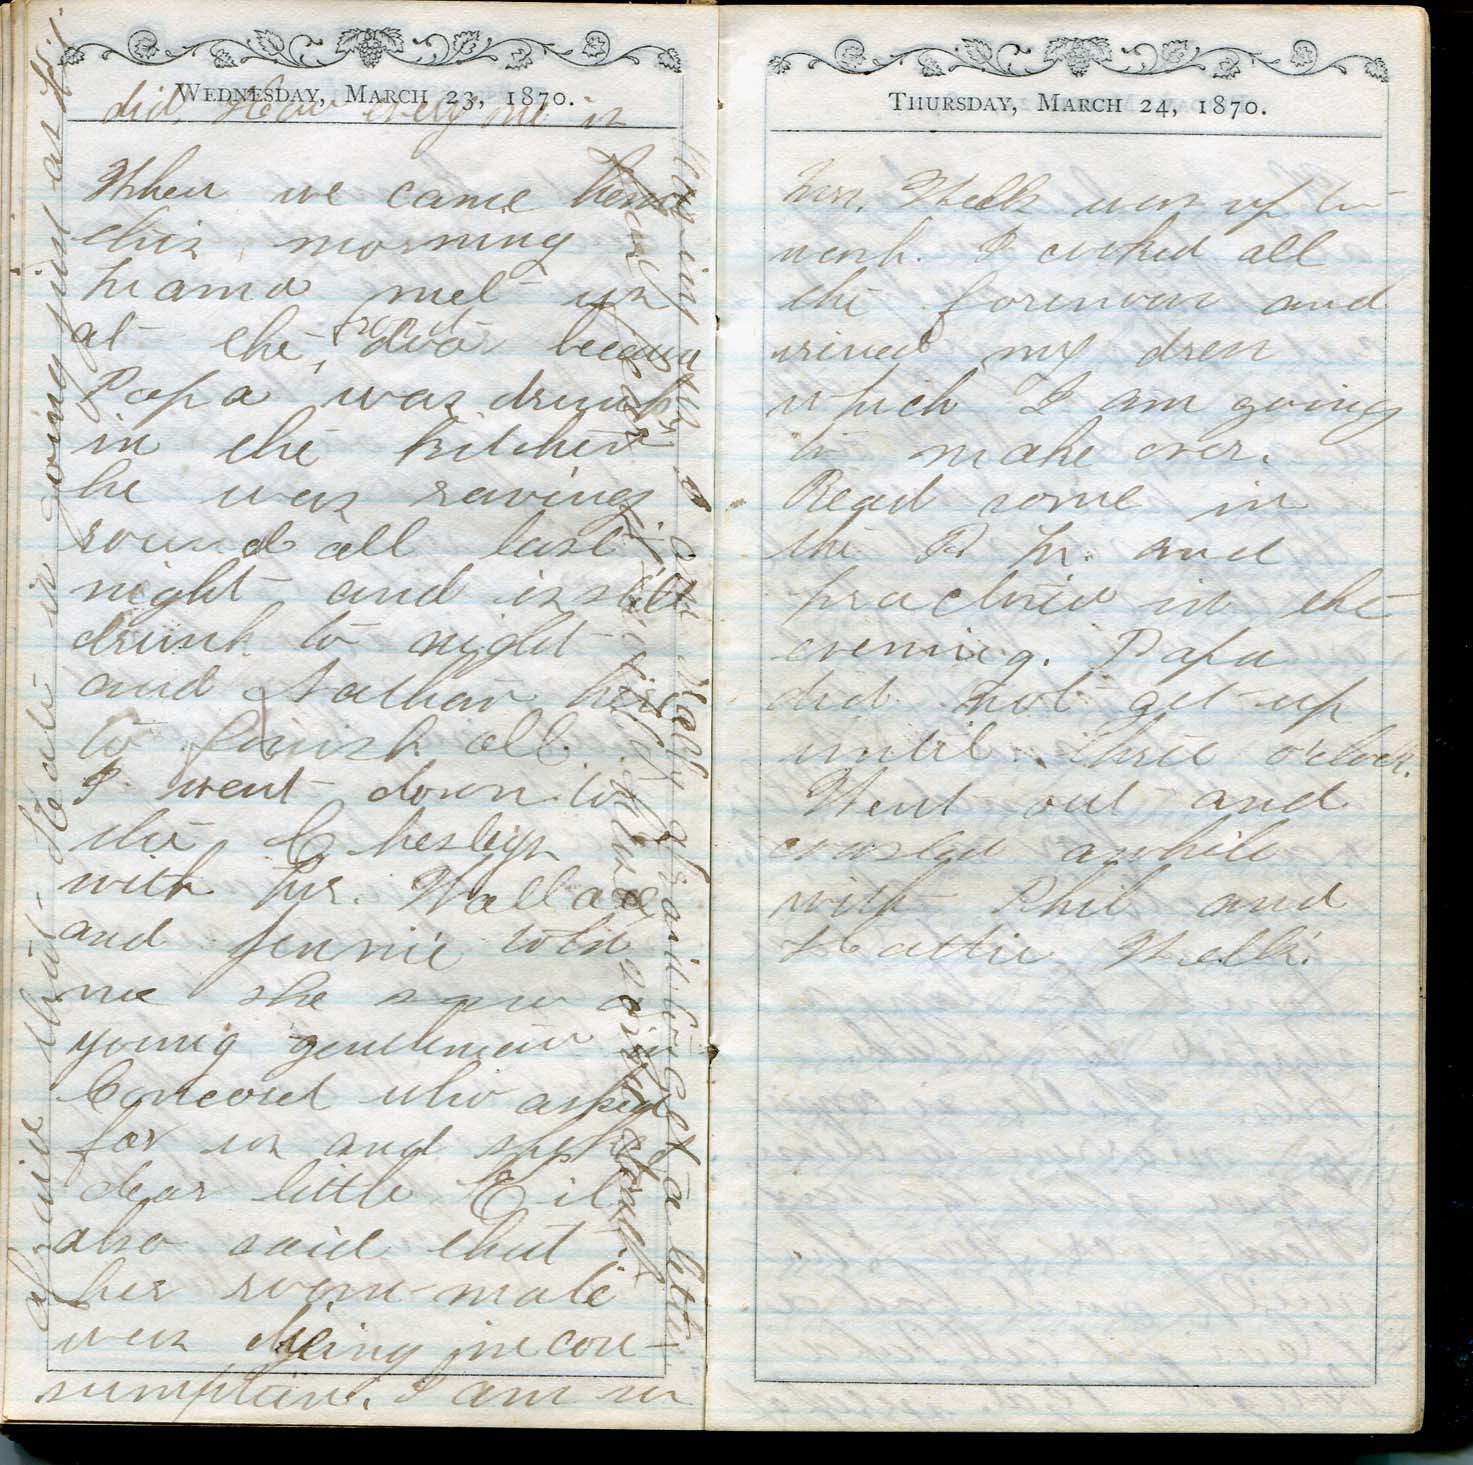 WEDNESDAY, MARCH 23, 1870.
When we came home
this morning
Mama met us
at the front door because
Papa was drunk
in the kitchen
he was raving
round all last
night and is still
drunk to night
and Nathan here
to finish all.
I went down to
the Chesleys
with Mr. Wallace
and Jennie told
me she saw a
young gentleman in
Concord who asked
for us and
dear little
also said that
her room-mate
was dying in con-
sumption. I am so
afraid that Kate is going just as
did. How every one is
having
to get a letter
THURSDAY, MARCH 24, 1870.
Mrs. Wells was up to
work. I cooked all
the forenoon and
my dress
which I am going
to make over.
Read some in
the P. M. and
practiced in the
evening. Papa
did not get up
until three o'clock.
Went out and
awhile
with Phil and
Hattie Wells.